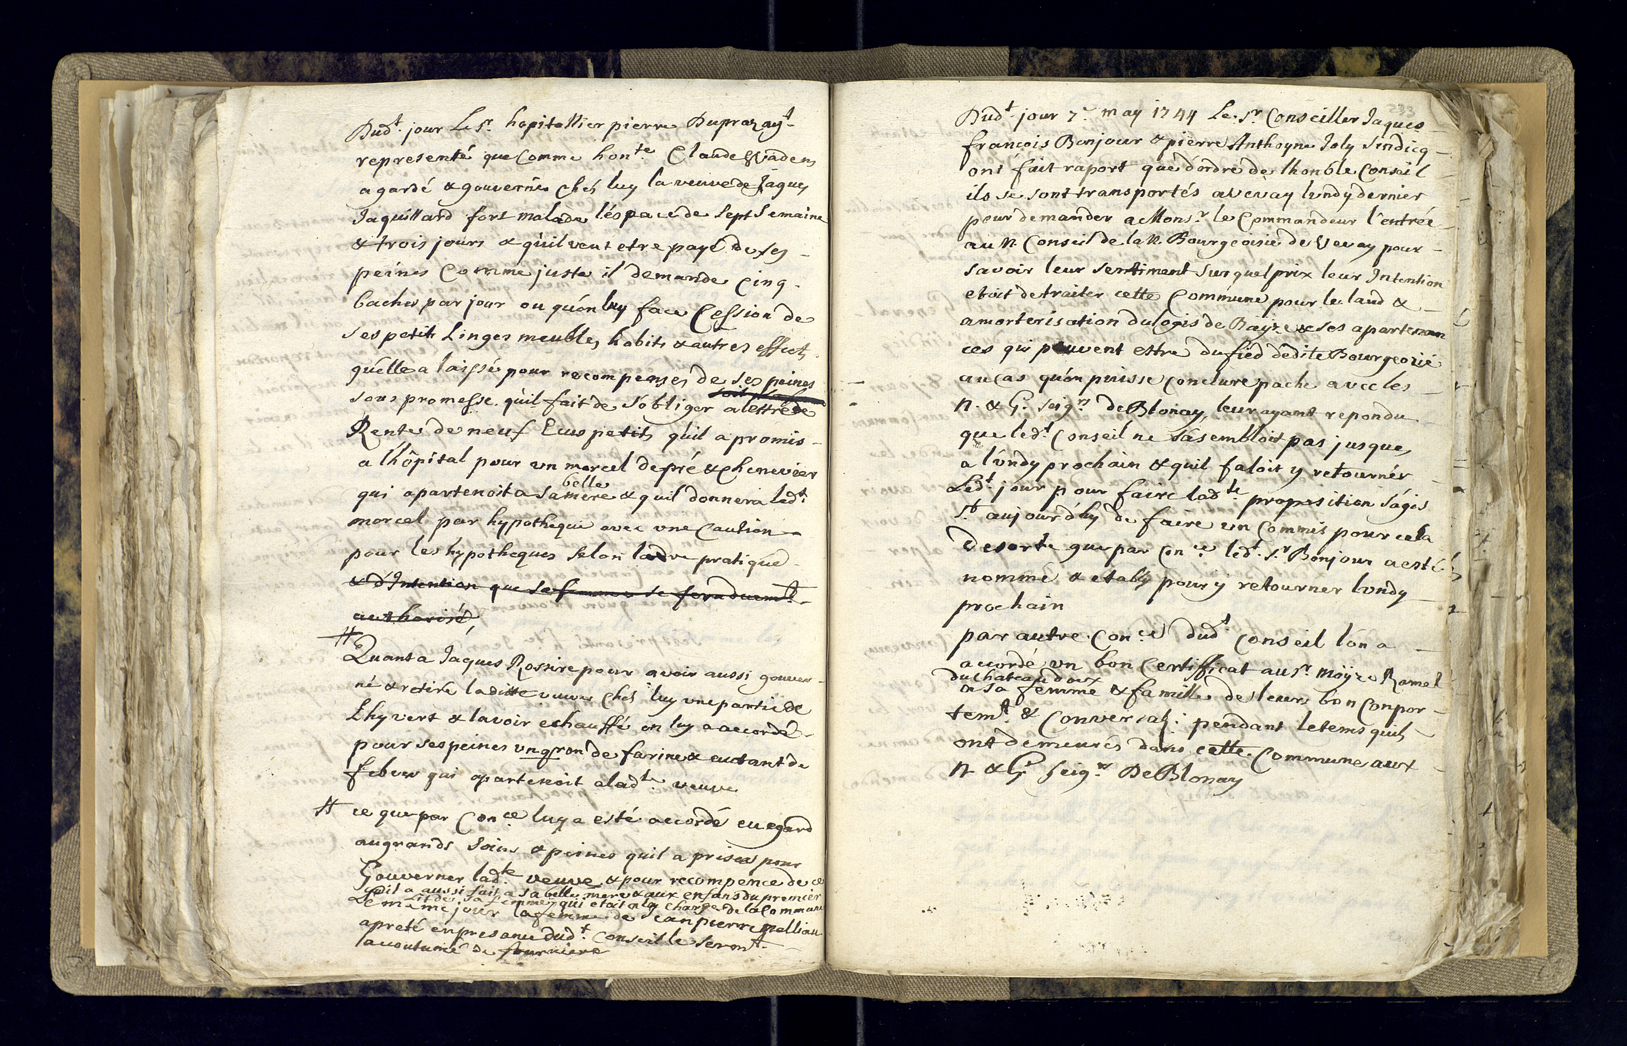 Dud.t jour Le S.r hopitallier pierre Dupraz ay.t
representé que Comme hon.te Claude Wadens
a gardé & gouvernés chés luy la veuve de Jaques
Jaquillard fort malade lésspace de Sept Semaine
& trois jours & quil veut etre payé de ses
peines Comme juste il demande Cinq
baches par jour ou quón luy face Cession de
Ses petits Linges meubles habits & autres effects
quélle a laissé pour recompenses de ses peines
sous promesse quíl fait de Sobliger a lettre de
Rente de neuf Ecus petits qúil a promis
a lhôpital pour un morcel de pré & Chenevier
belle
qui apartenoit a Sa mere & quil donnera led.t
morcel par hypotheque avec une Caution
pour les hypotheques selon la pratique
& d'Intention que sa femme se fera duem.t
authorisé,
Quant a Jaques Rossire pour avoir aussi gouver
né & retiré laditte veuve Chés luy une partie de
Lhyvert & lavoir echauffé on luy a accordé
pour ses peines un qron de farine & autant de
febves qui apartenoit a lad.te veuve
# ce que par Con.ce luy a esté accordé eu egard
au grands Soins & peines quil a prises pour
Gouverner lad.te veuve & pour recompence de ce
quil a aussi fait a Sa belle mere & aux enfans du premier
Lit de Sa femme qui etait a la Charge de la Commune
Le même jour la femme de Jean pierre melliau
a preté en presance dud.t Conseil le Serm.t
accoutumé de
233
Dud.t jour 7.e may 1744 Le S.r Conseiller Jaques
françois Bonjour & pierre Anthoyne Joly Sindicq
ont fait raport que dórdre de lhonble Conseil
ils se sont transportés a Vevay lundy dernier
pour demander a Mons.r le Commandeur l'entrée
au N. Conseil de la N. Bourgeoisie de Vevay pour
savoir leur sentiment sur quel prix leur Intention
etoit de traiter cette Commune pour le laud &
amorterisation du logis de Bayze & Ses apartenan
ces qui peuvent estre du fied dédite Bourgeozie
au cas qu'on puisse Conclure pache avec les
N. & G. Seig.rs de Blonay, leur ayant repondu
que led.t Conseil ne Sásembloit pas jusques
a lúndy prochain & quil faloit y retournér
Led.t jour pour faire lad.te proposition Ságis
S.t aujourdhy de faire un Commis pour cela
Desorte que par Con.ce led.t S.r Bonjour a esté
nommé & etably pour y retourner lundy
prochain
par autre Con.ce dud.t Conseil lón a
accordé un bon Certifficat au S.r moÿze Ramel
du chateau d'oex
& sa femme & famille de leurs bon Conpor
tem.t & Conversa.n pendant le tems quils
ont demeurés dans cette Commune aux
N & G.x Seig.rs De Blonay